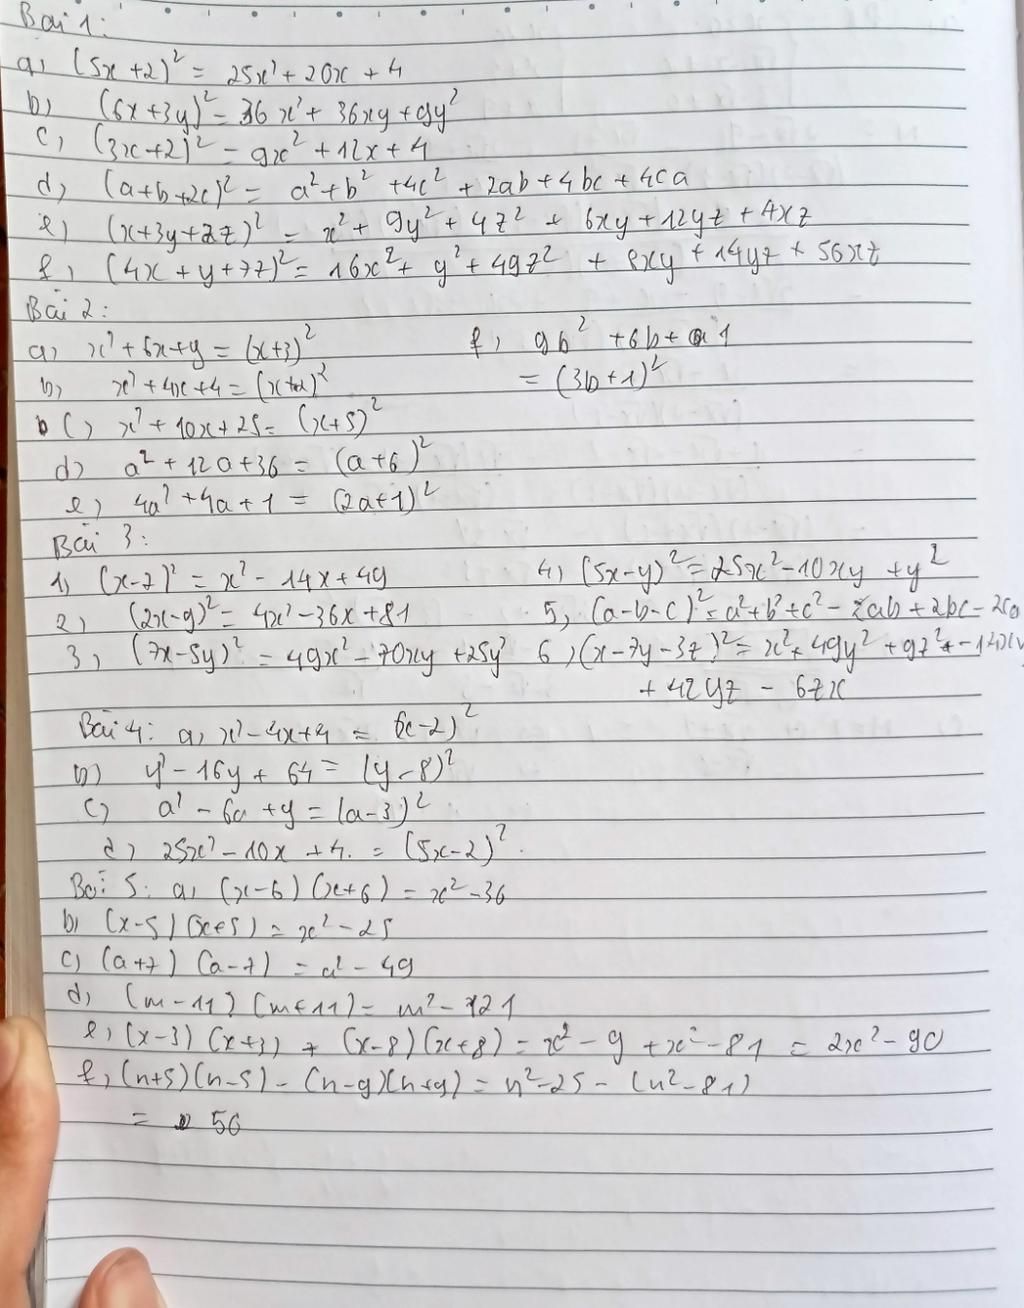 Bài 1:
a, (5x+2)² = 25x² + 20x + 4
b) (6x+3y)² = 36x² + 36xy + 9y²
c, (3x+2)² = 9x² + 12x + 4
d, (a+b+2c)² = a² + b² + 4c² + 2ab + 4bc + 4ca
e) (x+3y+2z)² = x² + 9y² + 4z² + 6xy + 12yz + 4xz
f, (4x+y+7z)² = 16x² + y² + 49z² + 8xy + 14yz + 56xz
Bài 2:
a, x² + 6x + 9 = (x+3)²
b, x² + 4x + 4 = (x+2)²
c, x² + 10x + 25 = (x+5)²
d) a² + 12a + 36 = (a+6)²
e) 4a² + 4a + 1 = (2a+1)²
f, 9b² + 6b + 1
= (3b+1)²
Bài 3:
1) (x-7)² = x² - 14x + 49
2, (2x-9)² = 4x² - 36x + 81
3, (7x-5y)² = 49x² - 70xy + 25y²
4, (5x-y)² = 25x² - 10xy + y²
5, (a-b-c)² = a² + b² + c² - 2ab + 2bc - 2ca
6, (x-7y-3z)² = x² + 49y² + 9z² + - 14xy
+ 42yz - 6zx
Bài 4: a, x² - 4x + 4 = (x-2)²
b) y² - 16y + 64 = (y-8)²
c) a² - 6a + 9 = (a-3)²
d) 25x² - 10x + 4. = (5x-2)².
Bài 5: a, (x-6)(x+6) = x² - 36
b) (x-5)(x+5) = x² - 25
c) (a+7)(a-7) = a² - 49
d, (m-11)(m+11) = m² - 121
e, (x-3)(x+3) + (x-8)(x+8) = x² - 9 + x² - 81 = 2x² - 90
f, (n+5)(n-5) - (n-9)(n+9) = n² - 25 - (n² - 81)
= 56